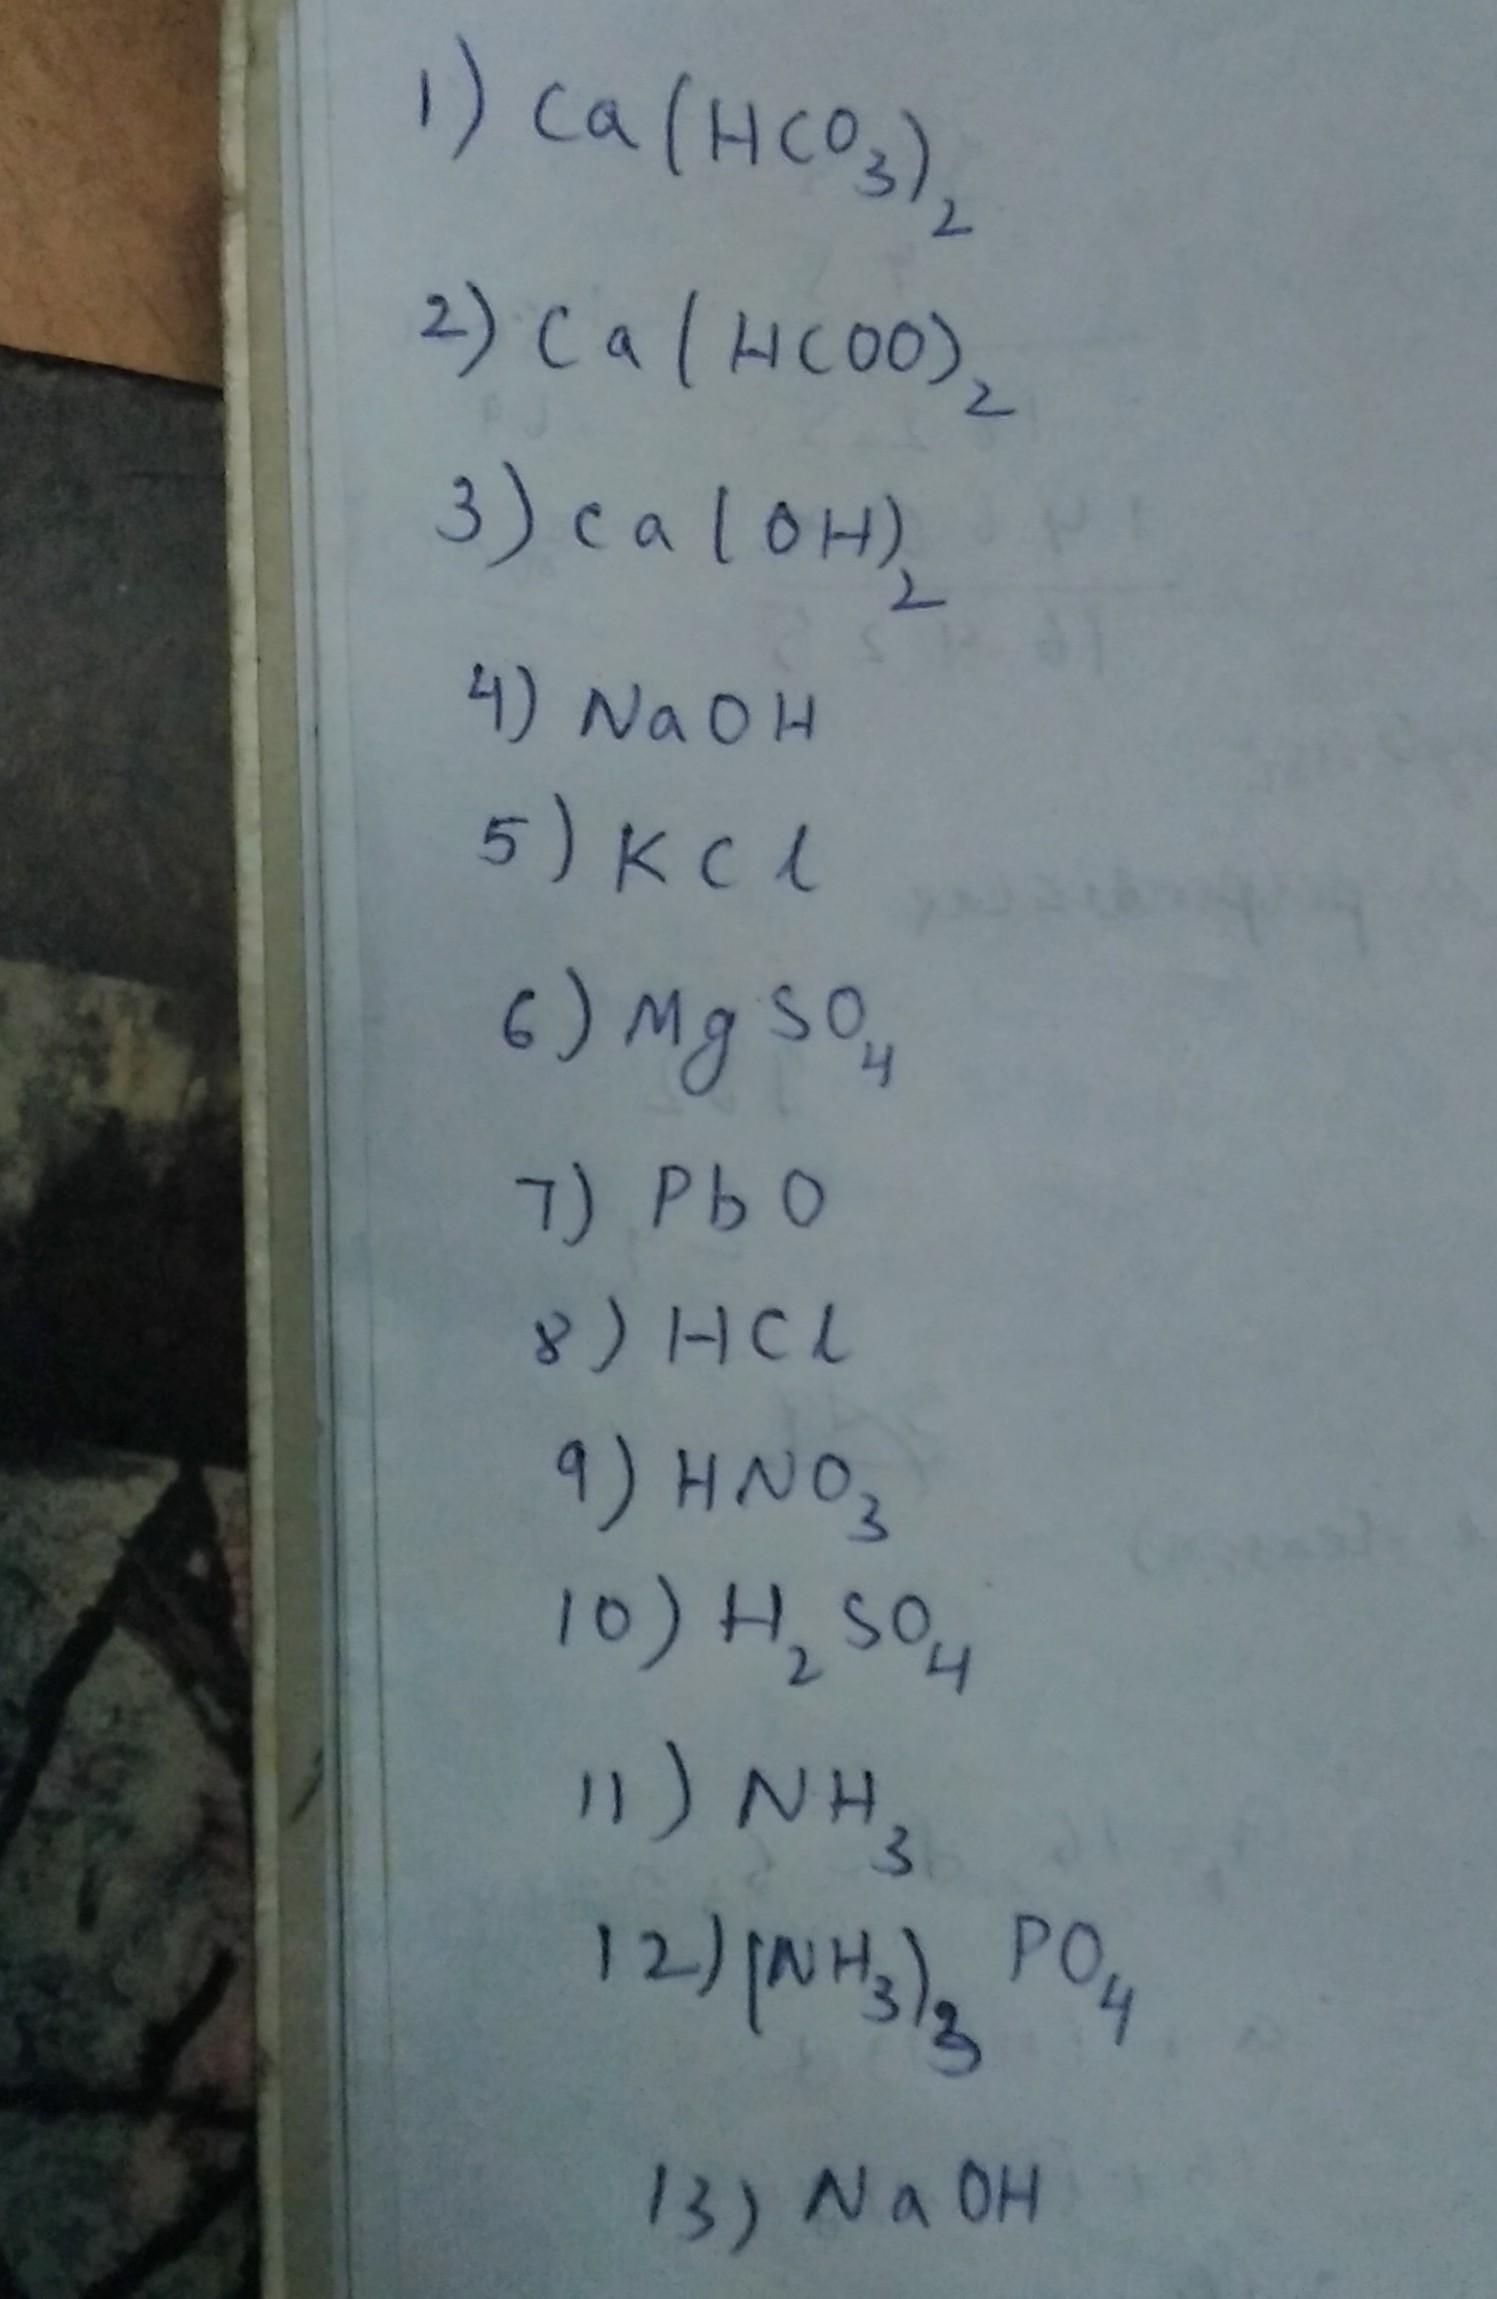 1) Ca(HCO₃)₂
2) Ca(HCOO)₂
3) Ca(OH)₂
4) NaOH
5) KCl
6) MgSO₄
7) PbO
8) HCl
9) HNO₃
10) H₂SO₄
11) NH₃
12) (NH₃)₃ PO₄
13) NaOH